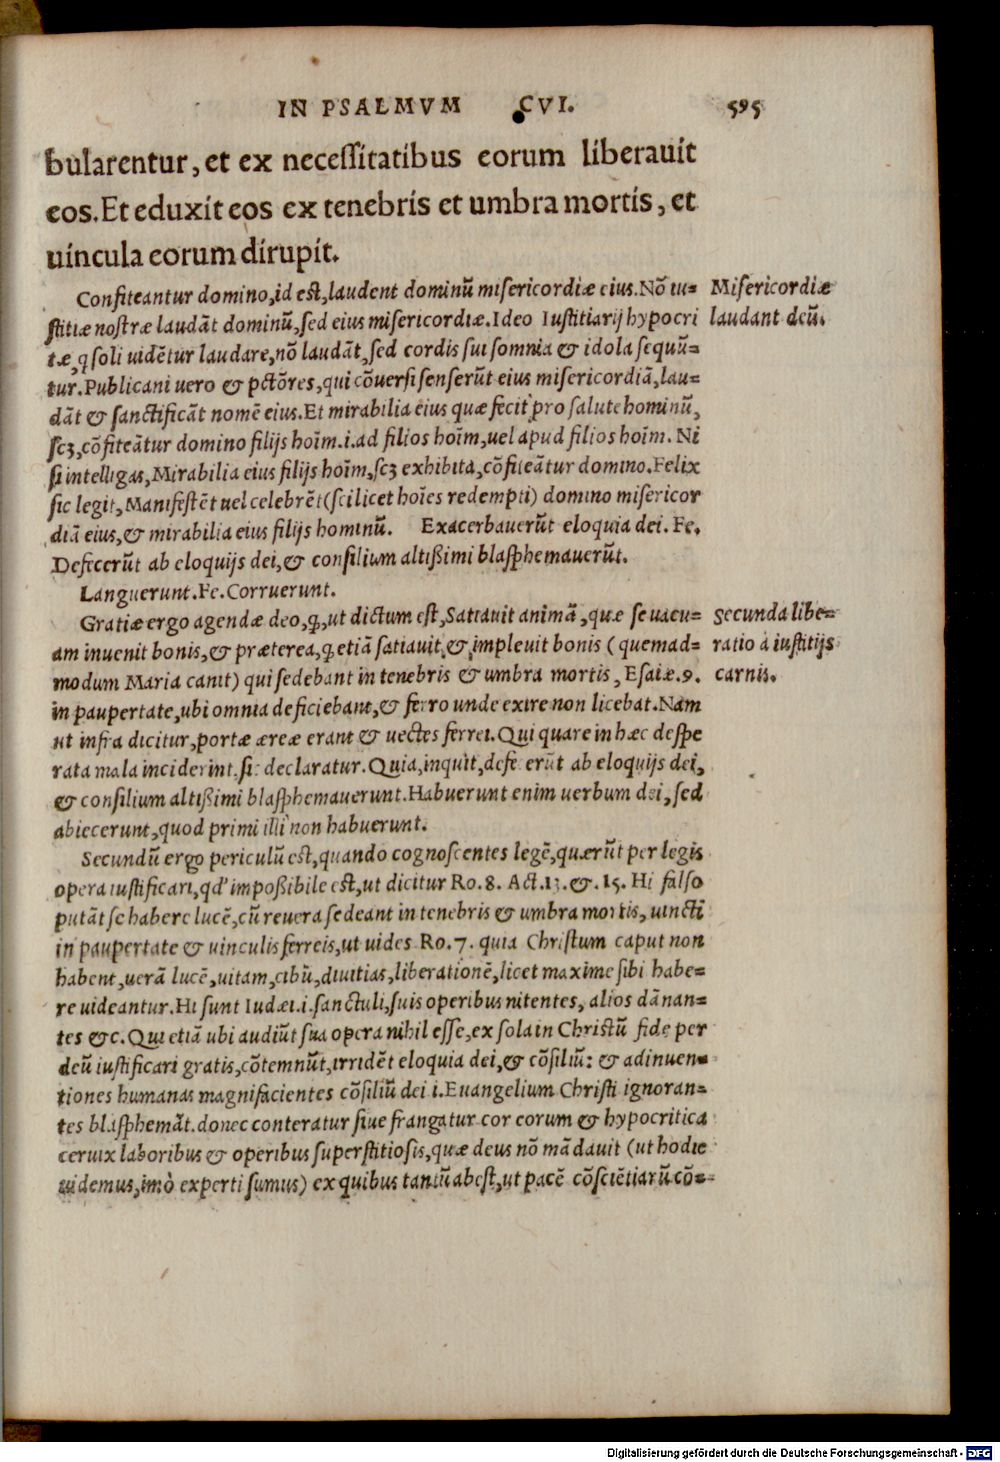 IN PSALMVM CVI. 595
bularentur, et ex neceſſitatibus eorum liberauit
eos. Et eduxit eos ex tenebris et umbra mortis, et
uincula eorum dirupit.
Confiteantur domino, id eſt, laudent dominũ miſericordiæ eius. Nõ iu=
ſtitiæ noſtræ laudãt dominũ, ſed eius miſericordiæ. Ideo Iuſtitiarij hypocri
tæ, q ſoli uidẽtur laudare, nõ laudãt, ſed cordis ſui ſomnia & idola ſequũ=
tur. Publicani uero & pctõres, qui cõuerſi ſenſerũt eius miſericordiã, lau=
dãt & ſanctificãt nomẽ eius. Et mirabilia eius quæ fecit pro ſalute hominũ,
ſcꝫ, cõfiteãtur domino filijs hoĩm. i. ad filios hoĩm, uel apud filios hoĩm. Ni
ſi intelligas, Mirabilia eius filijs hoĩm, ſcꝫ exhibita, cõfiteãtur domino. Felix
ſic legit, Manifeſtẽt uel celebrẽt (ſcilicet hoĩes redempti) domino miſericor
diã eius, & mirabilia eius filijs hominũ. Exacerbauerũt eloquia dei. Fe.
Defecerũt ab eloquijs dei, & conſilium altißimi blaſphemauerũt.
Languerunt. Fe. Corruerunt.
Gratiæ ergo agendæ deo, ꝙ, ut dictum eſt, Satiauit animã, quæ ſe uacu=
am inuenit bonis, & præterea, ꝙ etiã ſatiauit & impleuit bonis (quemad=
modum Maria canit) qui ſedebant in tenebris & umbra mortis, Eſaiæ. 9.
in paupertate, ubi omnia deficiebant, & ferro unde exire non licebat. Nam
ut infra dicitur, portæ æreæ erant & uectes ferrei. Qui quare in hæc deſpe
rata mala inciderint, ſic declaratur. Quia, inquit, defecerũt ab eloquijs dei,
& conſilium altißimi blaſphemauerunt. Habuerunt enim uerbum dei, ſed
abiecerunt, quod primi illi non habuerunt.
Secundũ ergo periculũ eſt, quando cognoſcentes legẽ, quærũt per legis
opera iuſtificari, qd' impoßibile eſt, ut dicitur Ro. 8. Act. 13. &. 15. Hi falſo
putãt ſe habere lucẽ, cũ reuera ſedeant in tenebris & umbra mortis, uincti
in paupertate & uinculis ferreis, ut uides Ro. 7. quia Chriſtum caput non
habent, uerã lucẽ, uitam, cibũ, diuitias, liberationẽ, licet maxime ſibi habe=
re uideantur. Hi ſunt Iudæi. i. ſanctuli, ſuis operibus nitentes, alios dãnan=
tes &c. Qui etiã ubi audiũt ſua opera nihil eſſe, ex ſola in Chriſtũ fide per
deũ iuſtificari gratis, cõtemnũt, irridẽt eloquia dei, & cõſiliũ: & adinuen=
tiones humanas magnifacientes cõſiliũ dei i. Euangelium Chriſti ignoran=
tes blaſphemãt. donec conteratur ſiue frangatur cor eorum & hypocritica
ceruix laboribus & operibus ſuperſtitioſis, quæ deus nõ mãdauit (ut hodie
uidemus, imò experti ſumus) ex quibus tantũ abeſt, ut pacẽ cõſciẽtiarũ cõ=
Miſericordiæ
laudant deũ.
Secunda libe=
ratio à iuſtitijs
carnis.
Digitalisierung gefördert durch die Deutsche Forschungsgemeinschaft - DFG